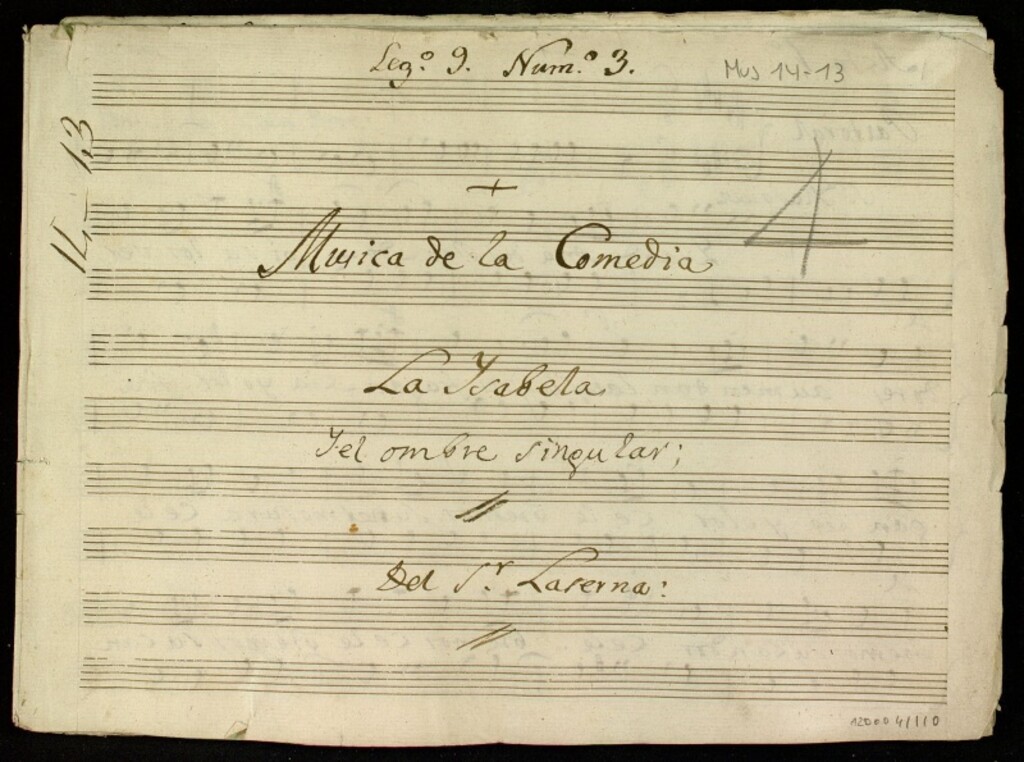 Leg.º 9. Num.º 3.
Mus 14-13
14-13
4
+
Musica de la Comedia
La Ysabela
Y el ombre singular;
Del S.r Laserna:
120004110